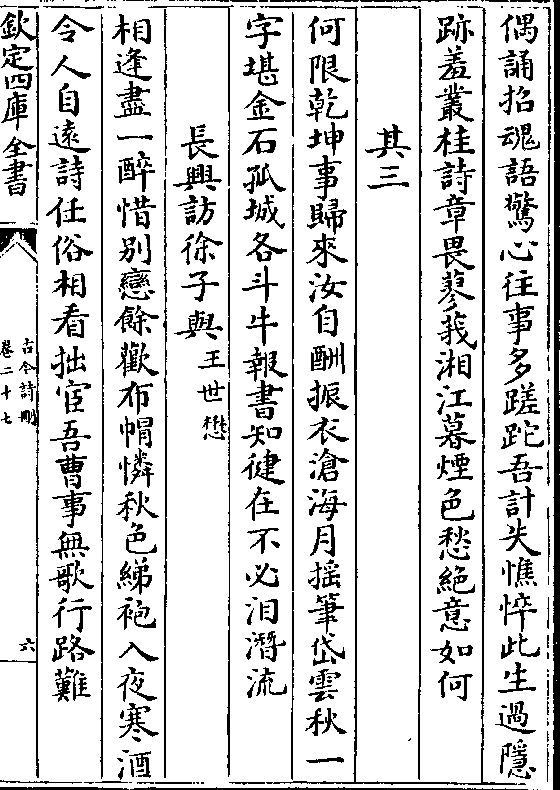 偶誦招魂語驚心往事多蹉跎吾計失憔悴此生過隱
跡羞叢桂詩章畏蓼莪湘江暮煙色愁絕意如何
其三
何限乾坤事歸來汝自酬振衣滄海月揺筆岱雲秋一
字堪金石孤城各斗牛報書知健在不必泪潛流
長興訪徐子與王世懋
相逢盡一醉惜别戀餘歡布㡌憐秋色綈袍入夜寒酒
令人自遠詩任俗相看拙宦吾曹事無歌行路難
欽定四庫全書
古今詩刪
卷二十七
六